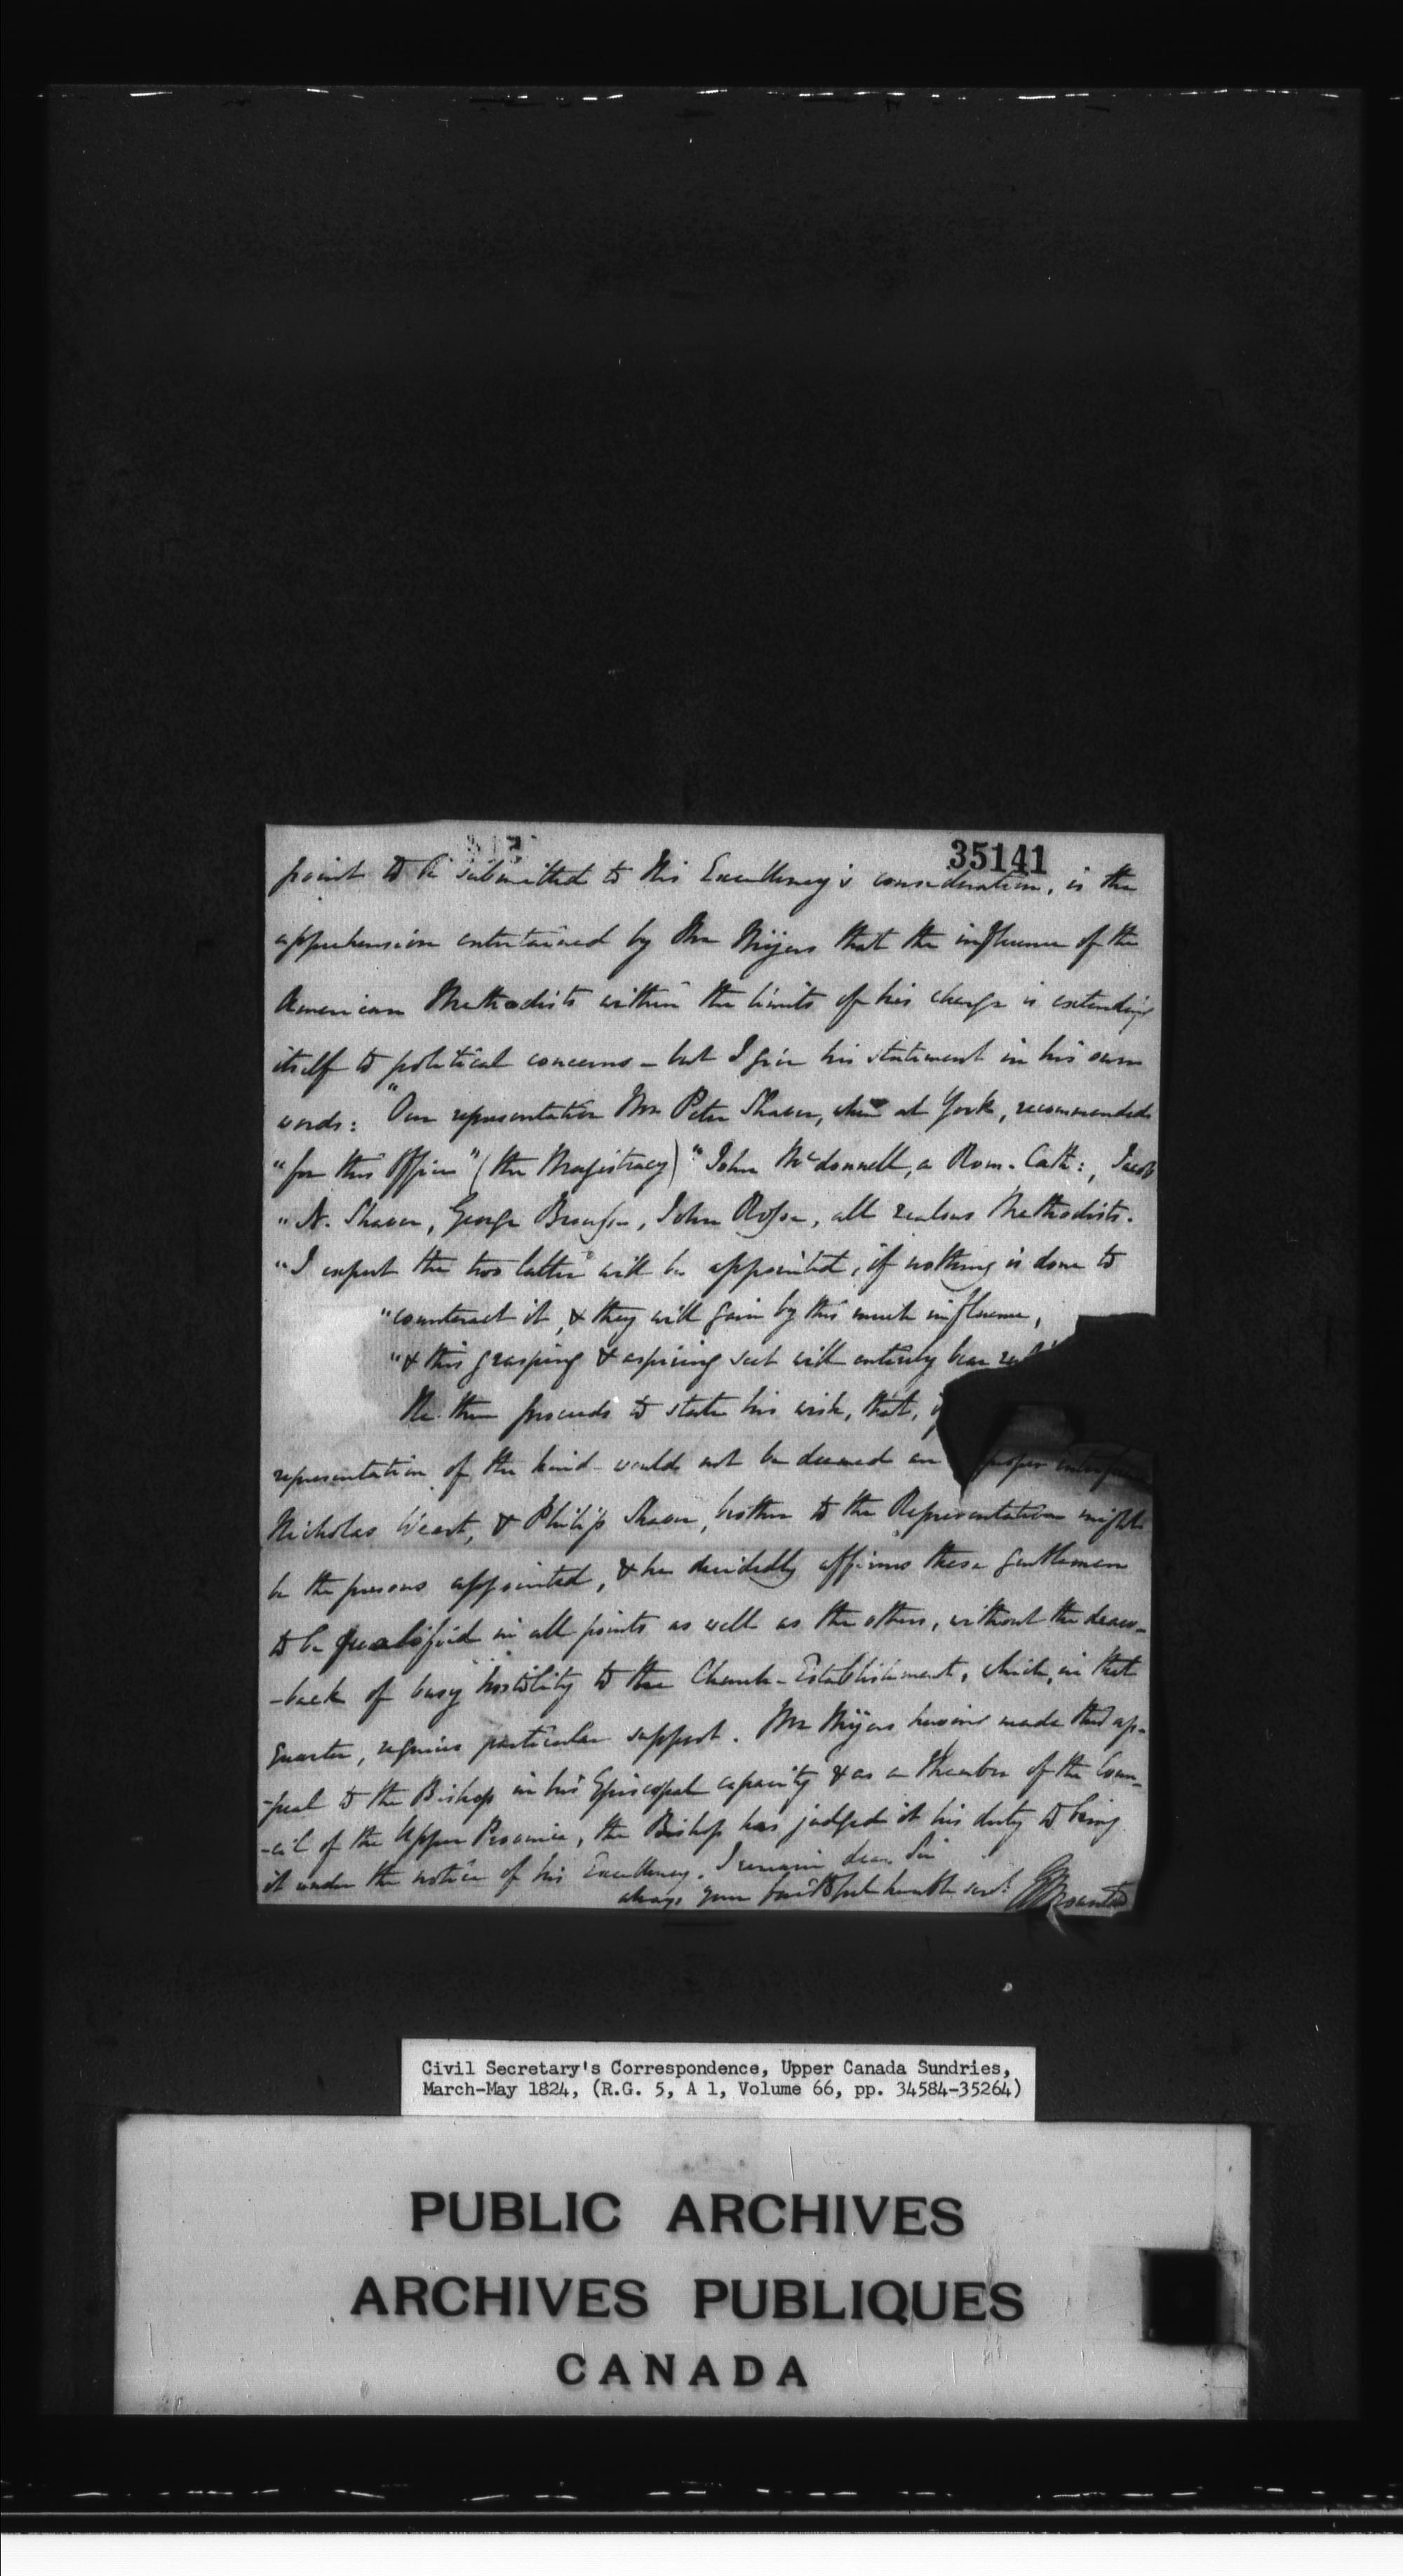 35141
point to be submitted to His Excellency's consideration, is the
apprehension entertained by Mr Mÿers that the influence of the
American Methodists within the limits of his charge is extending
itself to political concerns – but I give his statement in his own
words: "Our representative Mr Peter Shaver, when at York, recommended
"for this Office" (the Magistracy) "John McDonnell, a Rom. Cath:, Jacob
"N. Shaver, George Brouse, John Rose, all zealous Methodists.
"I expect the two latter will be appointed, if nothing is done to
"counteract it, & they will gain by this much influence,
"& this grasping & aspiring sect will entirely bear
He then proceeds to state his wish, that,
representation of the kind would not be deemed an
Nicholas Weart, & Philip Shaver, brother to the Representative might
be the persons appointed, & he decidedly affirms these gentlemen
to be qualified in all points as well as the others, without the draw-
-back of busy hostility to the Church-Establishment, which, in that
Quarter, requires particular support. Mr Mÿers having made this ap-
-peal to the Bishop in his Episcopal capacity & as a Member of the Coun-
-cil of the Upper Province, the Bishop has judged it his duty to bring
it under the notice of his Excellency. I remain dear Sir
always your faithful humble servt
Civil Secretary's Correspondence, Upper Canada Sundries,
March-May 1824, (R.G. 5, A 1, Volume 66, pp. 34584-35264)
PUBLIC ARCHIVES
ARCHIVES PUBLIQUES
CANADA